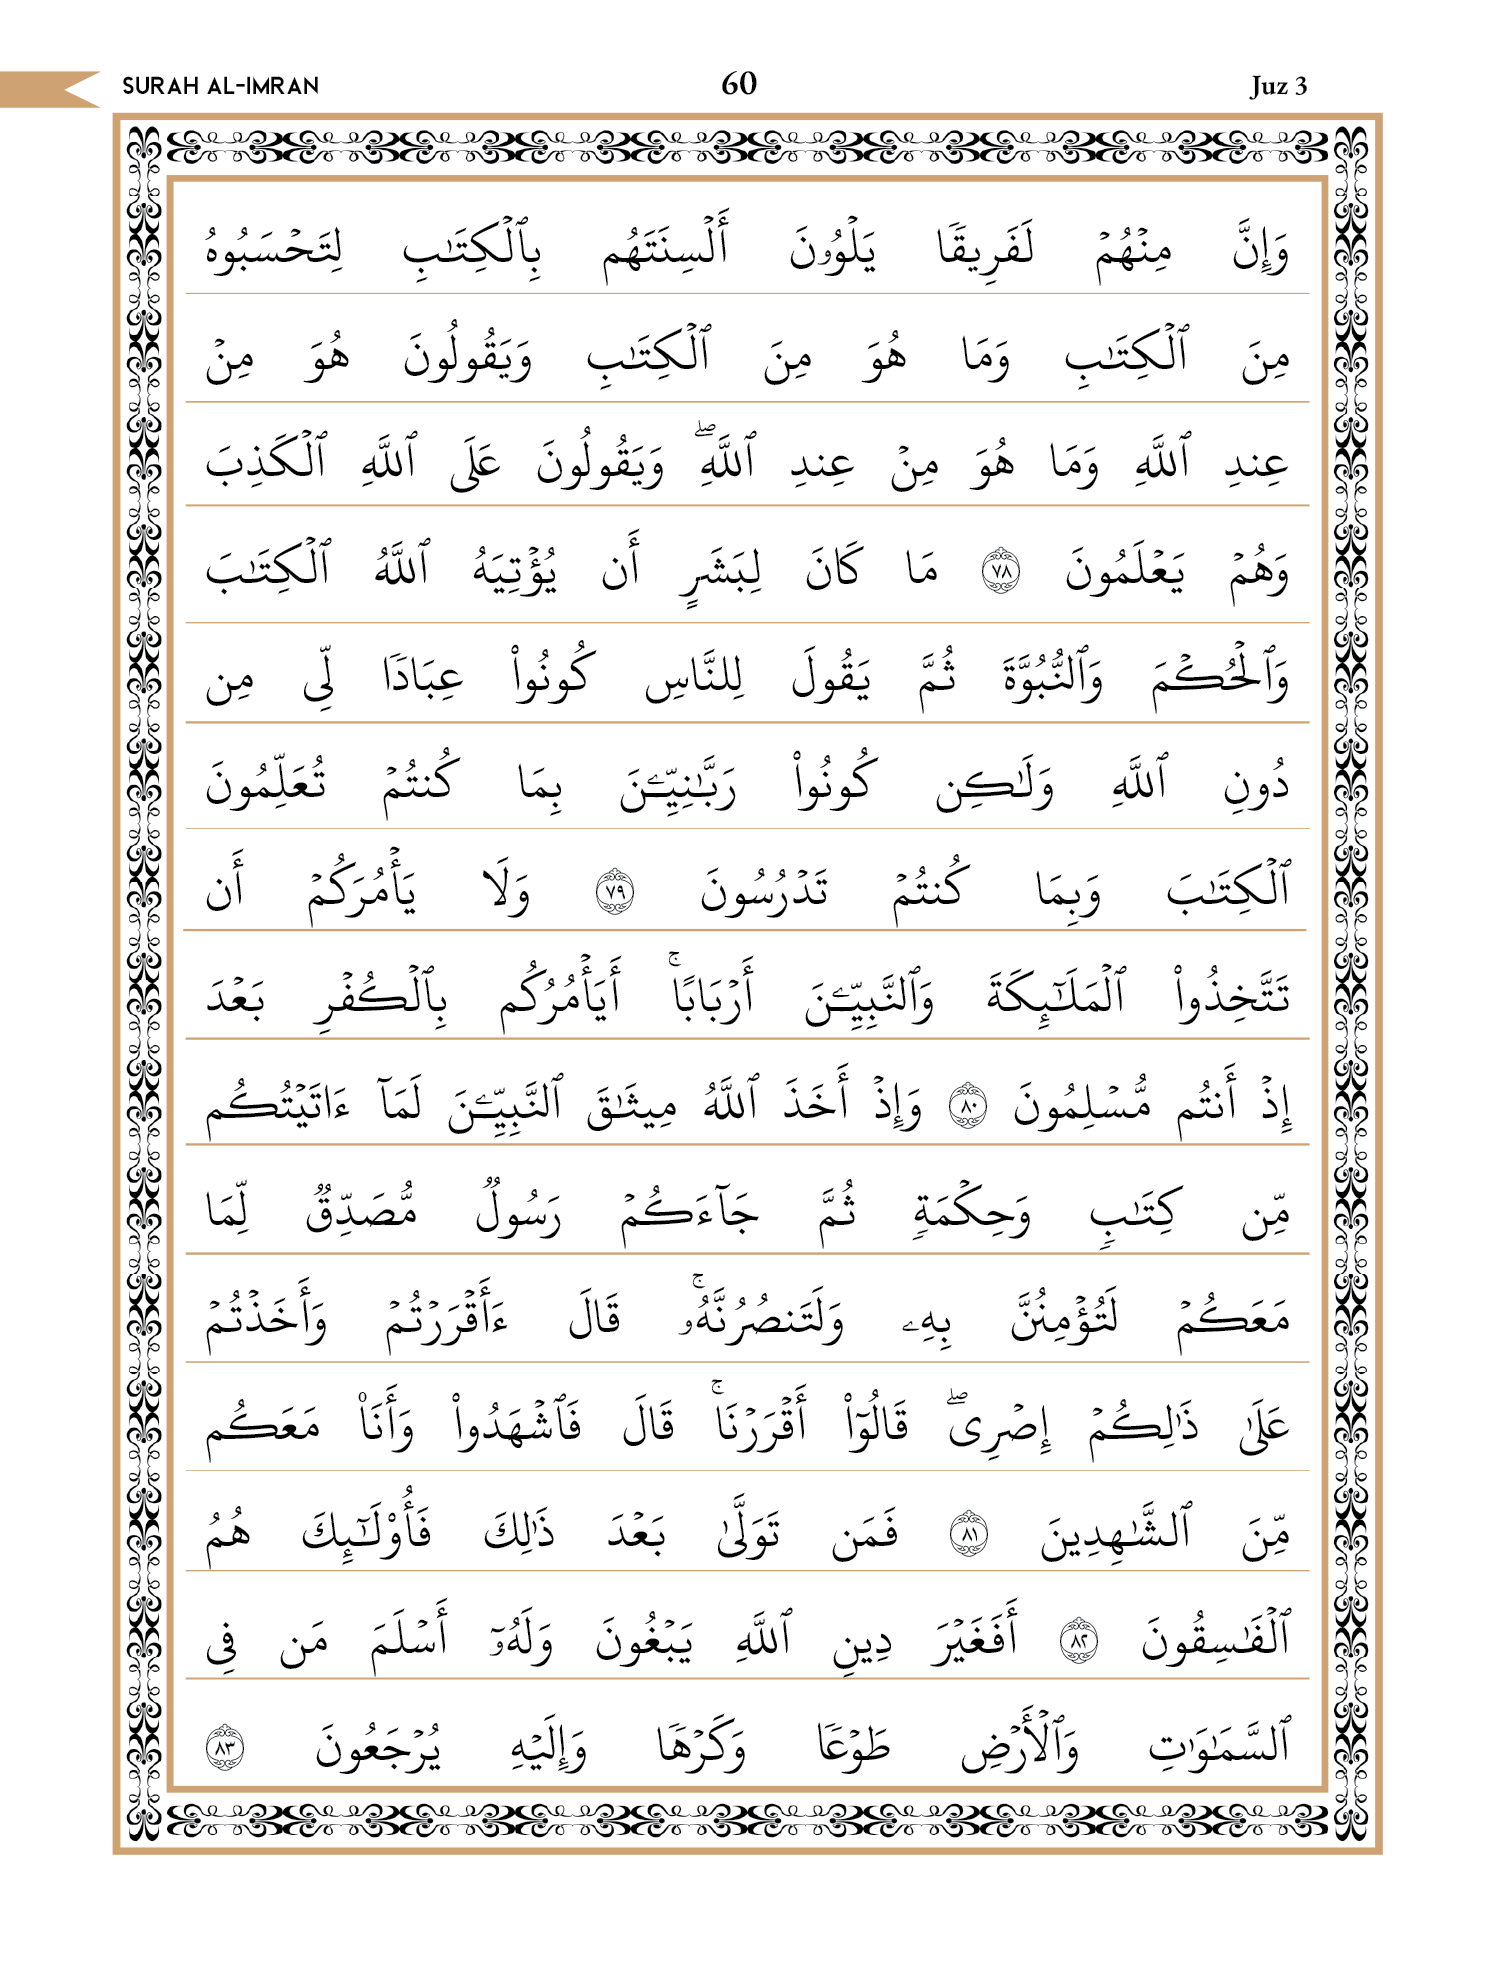 SURAH AL-IMRAN 60 Juz 3
وَإِنَّ مِنۡهُمۡ لَفَرِيقٗا يَلۡوُۥنَ أَلۡسِنَتَهُم بِٱلۡكِتَٰبِ لِتَحۡسَبُوهُ
مِنَ ٱلۡكِتَٰبِ وَمَا هُوَ مِنَ ٱلۡكِتَٰبِ وَيَقُولُونَ هُوَ مِنۡ
عِندِ ٱللَّهِ وَمَا هُوَ مِنۡ عِندِ ٱللَّهِۖ وَيَقُولُونَ عَلَى ٱللَّهِ ٱلۡكَذِبَ
وَهُمۡ يَعۡلَمُونَ ٧٨ مَا كَانَ لِبَشَرٍ أَن يُؤۡتِيَهُ ٱللَّهُ ٱلۡكِتَٰبَ
وَٱلۡحُكۡمَ وَٱلنُّبُوَّةَ ثُمَّ يَقُولَ لِلنَّاسِ كُونُواْ عِبَادٗا لِّي مِن
دُونِ ٱللَّهِ وَلَٰكِن كُونُواْ رَبَّٰنِيِّـۧنَ بِمَا كُنتُمۡ تُعَلِّمُونَ
ٱلۡكِتَٰبَ وَبِمَا كُنتُمۡ تَدۡرُسُونَ ٧٩ وَلَا يَأۡمُرَكُمۡ أَن
تَتَّخِذُواْ ٱلۡمَلَٰٓئِكَةَ وَٱلنَّبِيِّـۧنَ أَرۡبَابًاۚ أَيَأۡمُرُكُم بِٱلۡكُفۡرِ بَعۡدَ
إِذۡ أَنتُم مُّسۡلِمُونَ ٨٠ وَإِذۡ أَخَذَ ٱللَّهُ مِيثَٰقَ ٱلنَّبِيِّـۧنَ لَمَآ ءَاتَيۡتُكُم
مِّن كِتَٰبٖ وَحِكۡمَةٖ ثُمَّ جَآءَكُمۡ رَسُولٞ مُّصَدِّقٞ لِّمَا
مَعَكُمۡ لَتُؤۡمِنُنَّ بِهِۦ وَلَتَنصُرُنَّهُۥۚ قَالَ ءَأَقۡرَرۡتُمۡ وَأَخَذۡتُمۡ
عَلَىٰ ذَٰلِكُمۡ إِصۡرِيۖ قَالُوٓاْ أَقۡرَرۡنَاۚ قَالَ فَٱشۡهَدُواْ وَأَنَا۠ مَعَكُم
مِّنَ ٱلشَّٰهِدِينَ ٨١ فَمَن تَوَلَّىٰ بَعۡدَ ذَٰلِكَ فَأُوْلَٰٓئِكَ هُمُ
ٱلۡفَٰسِقُونَ ٨٢ أَفَغَيۡرَ دِينِ ٱللَّهِ يَبۡغُونَ وَلَهُۥٓ أَسۡلَمَ مَن فِي
ٱلسَّمَٰوَٰتِ وَٱلۡأَرۡضِ طَوۡعٗا وَكَرۡهٗا وَإِلَيۡهِ يُرۡجَعُونَ ٨٣